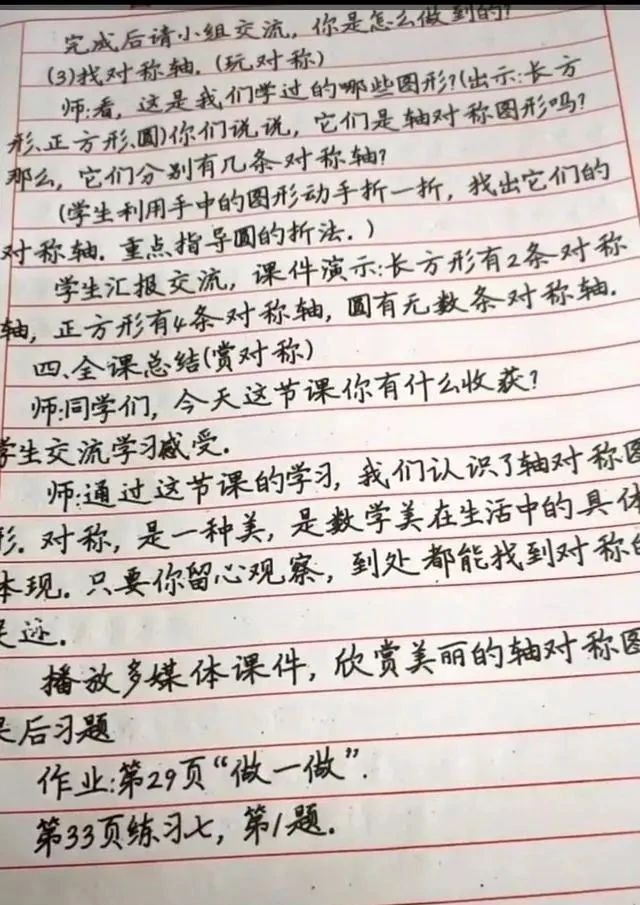 完成后请小组交流，你是怎么做到的？
(3)找对称轴.(玩对称)
师:看，这是我们学过的哪些图形?(出示:长方
形、正方形、圆)你们说说，它们是轴对称图形吗?
那么，它们分别有几条对称轴?
(学生利用手中的图形动手折一折，找出它们的
对称轴.重点指导圆的折法.)
学生汇报交流，课件演示:长方形有2条对称
轴，正方形有4条对称轴，圆有无数条对称轴.
四、全课总结(赏对称)
师:同学们，今天这节课你有什么收获?
学生交流学习感受.
师:通过这节课的学习，我们认识了轴对称图
形.对称，是一种美，是数学美在生活中的具体
体现.只要你留心观察，到处都能找到对称的
足迹.
播放多媒体课件，欣赏美丽的轴对称图
后习题
作业:第29页“做一做”.
第33页练习七，第1题.